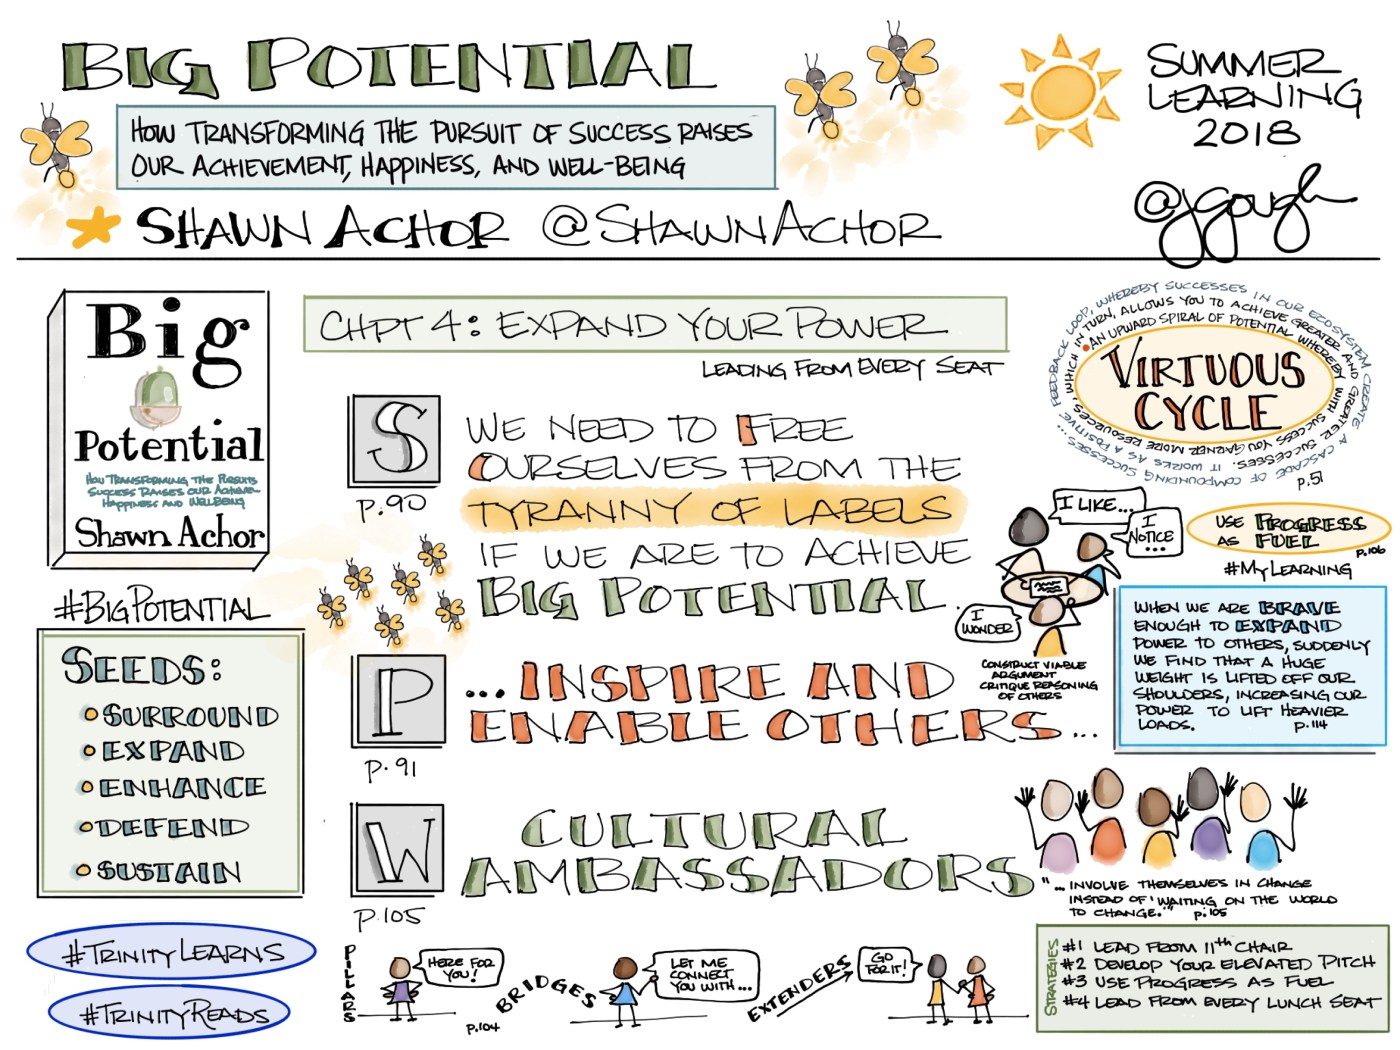 BIG POTENTIAL
HOW TRANSFORMING THE PURSUIT OF SUCCESS RAISES
OUR ACHIEVEMENT, HAPPINESS, AND WELL-BEING
SHAWN ACHOR @SHAWNACHOR
SUMMER
LEARNING
2018
@jgough
Big
Potential
HOW TRANSFORMING THE PURSUITS
SUCCESS RAISES OUR ACHIEVE-
HAPPINESS AND WELLBEING
Shawn Achor
#BIGPOTENTIAL
SEEDS:
SURROUND
EXPAND
ENHANCE
DEFEND
SUSTAIN
#TRINITYLEARNS
#TRINITYREADS
CHPT 4: EXPAND YOUR POWER
LEADING FROM EVERY SEAT
S
P.90
WE NEED TO FREE
OURSELVES FROM THE
TYRANNY OF LABELS
IF WE ARE TO ACHIEVE
BIG POTENTIAL.
P
P.91
...INSPIRE AND
ENABLE OTHERS...
W
P.105
CULTURAL
AMBASSADORS
"... INVOLVE THEMSELVES IN CHANGE
INSTEAD OF 'WAITING ON THE WORLD
TO CHANGE.'" P.105
PILLARS
HERE FOR
YOU!
P.104
BRIDGES
LET ME
CONNECT
YOU WITH...
EXTENDERS
GO
FOR IT!
VIRTUOUS
CYCLE
AN UPWARD SPIRAL OF POTENTIAL WHEREBY WITH SUCCESS YOU GARNER MORE RESOURCES, WHICH IN TURN, ALLOWS YOU TO ACHIEVE GREATER AND GREATER SUCCESSES. IT WORKS AS A POSITIVE FEEDBACK LOOP, WHEREBY SUCCESSES IN OUR ECOSYSTEM CREATE A CASCADE OF COMPOUNDING SUCCESSES...
P.51
I LIKE...
I
NOTICE
...
I
WONDER
CONSTRUCT VIABLE
ARGUMENT
CRITIQUE REASONING
OF OTHERS
USE PROGRESS
AS FUEL
P.106
#MYLEARNING
WHEN WE ARE BRAVE
ENOUGH TO EXPAND
POWER TO OTHERS, SUDDENLY
WE FIND THAT A HUGE
WEIGHT IS LIFTED OFF OUR
SHOULDERS, INCREASING OUR
POWER TO LIFT HEAVIER
LOADS. P.114
STRATEGIES
#1 LEAD FROM 11th CHAIR
#2 DEVELOP YOUR ELEVATED PITCH
#3 USE PROGRESS AS FUEL
#4 LEAD FROM EVERY LUNCH SEAT